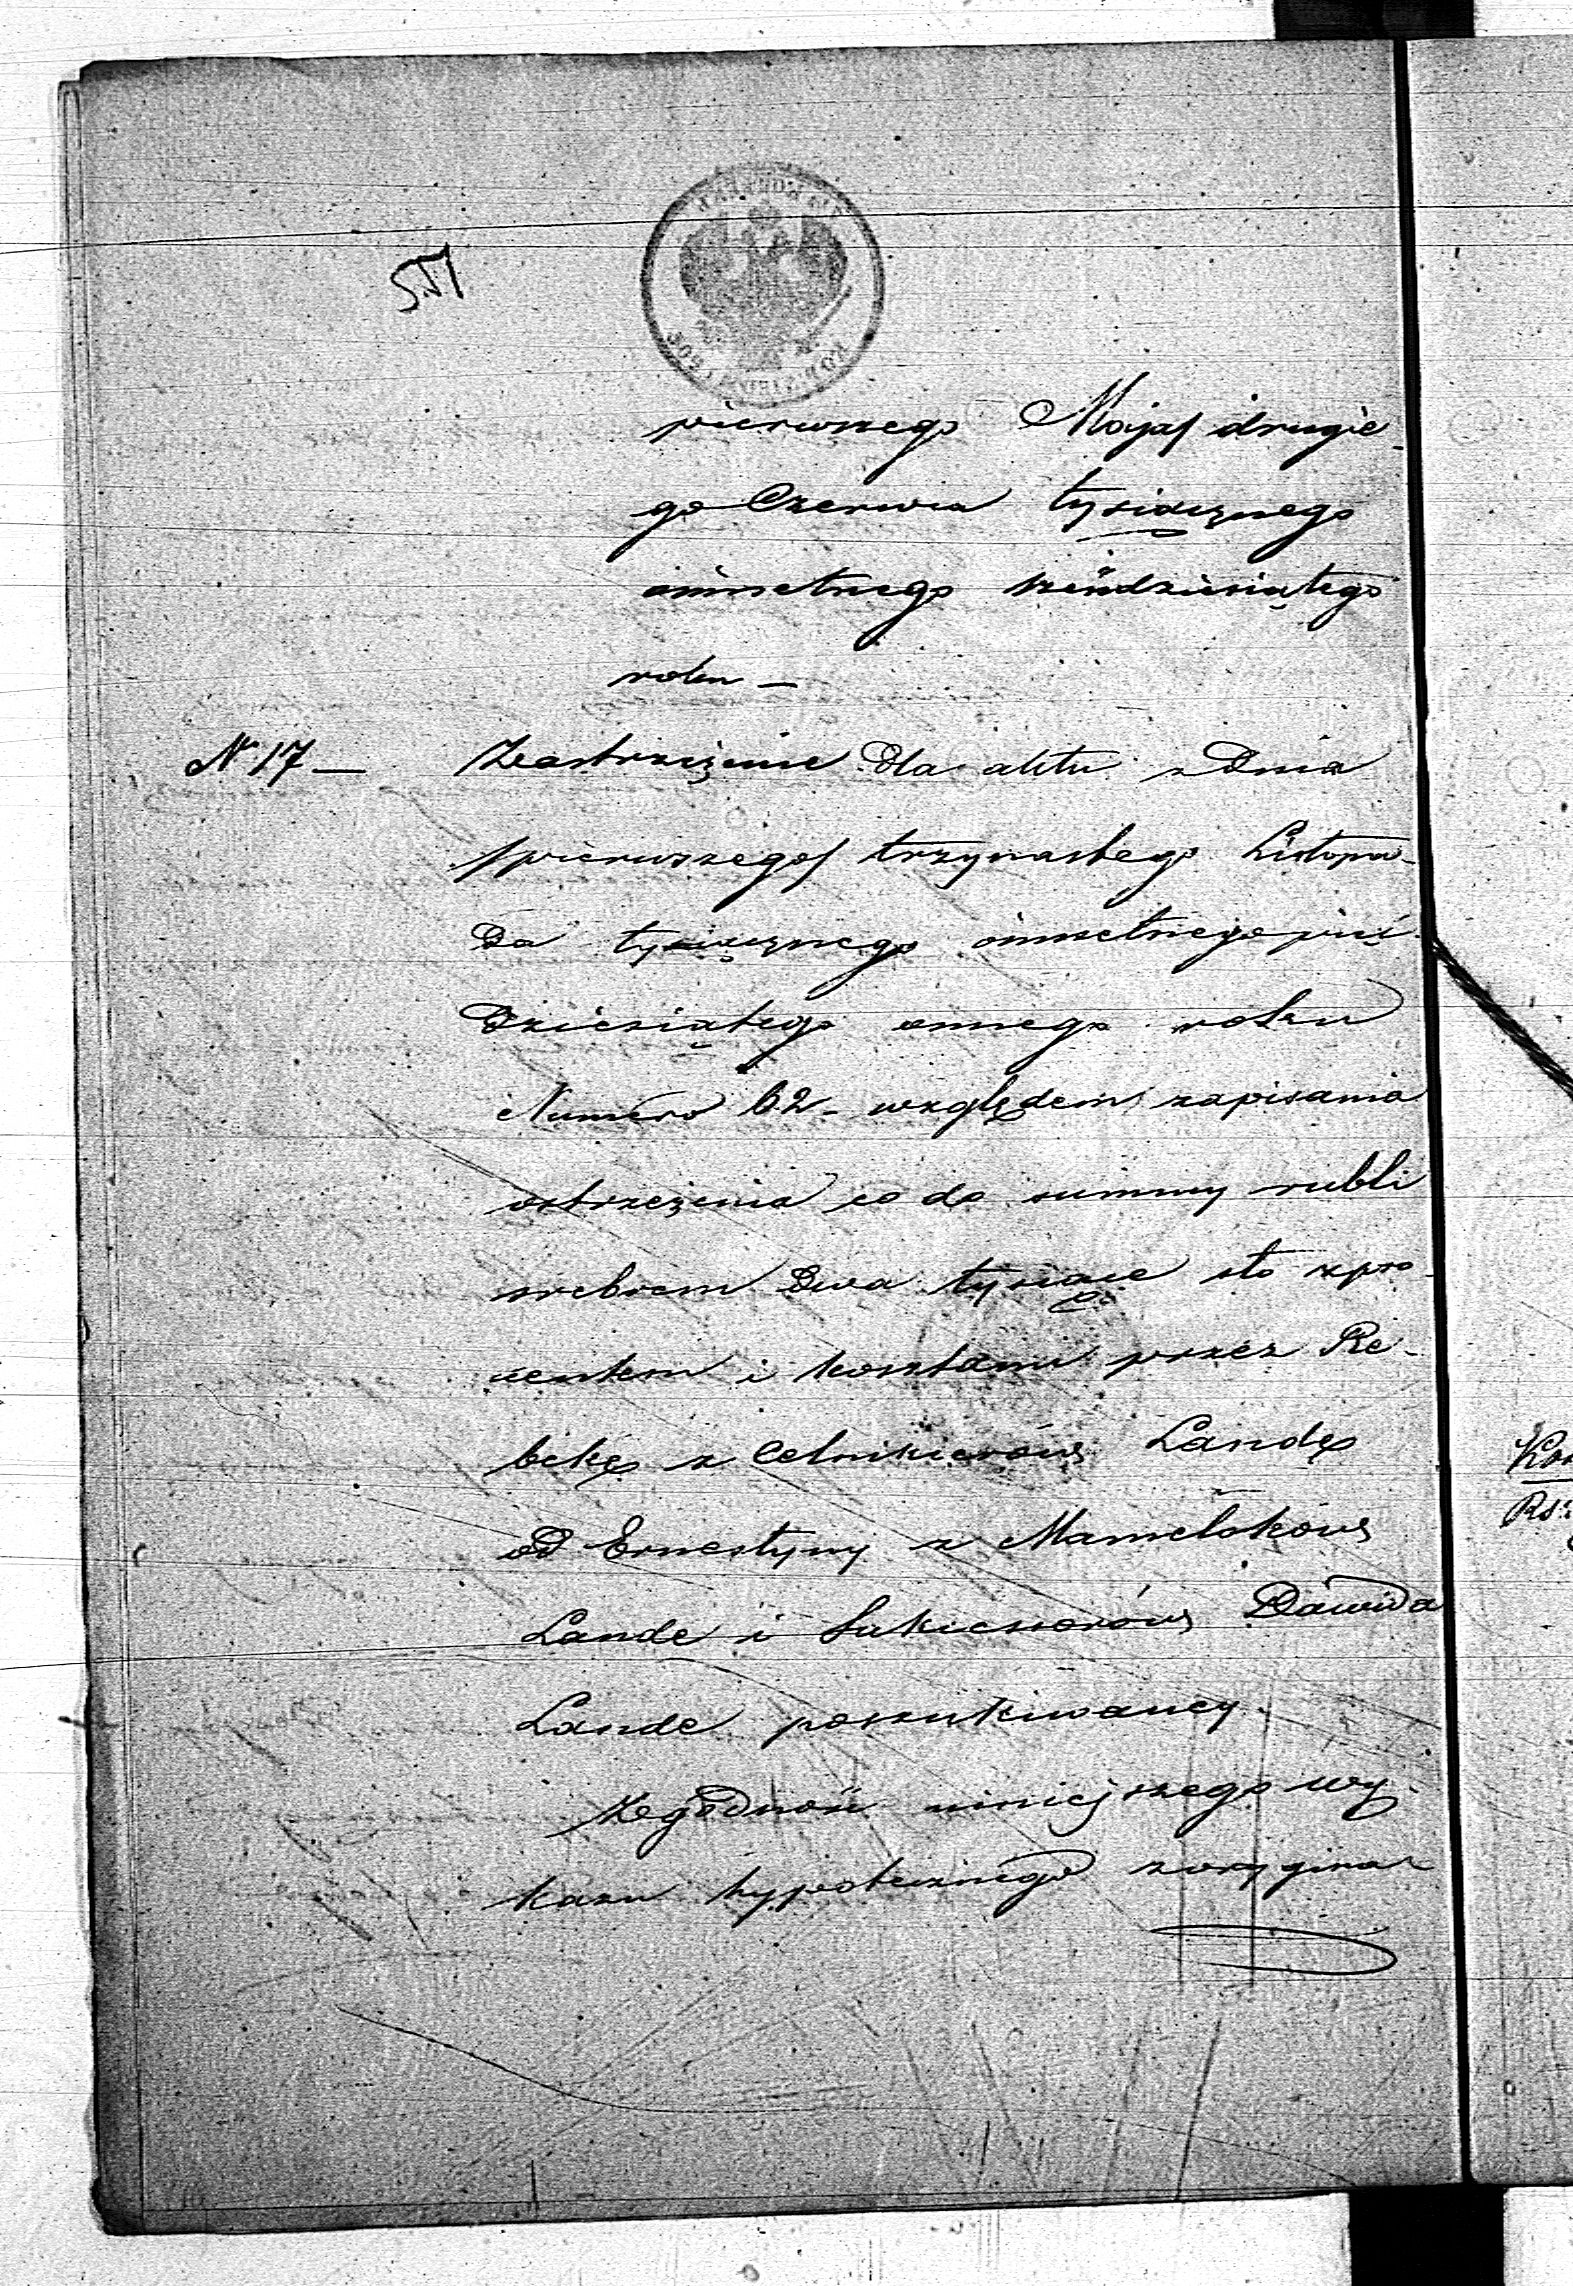 571
pierwszego Maja/ drugie-
go Czerwca tysiącznego
ośmsetnego sześćdziesiątego
roku —
N 17 — Zastrzeżenie dla aktu z dnia
/pierwszego/ trzynastego Listopa-
da tysiącznego ośmsetnego pięć-
dziesiątego ósmego roku
Numero 62 - względem zapisania
ostrzeżenia co do summy rubli
srebrem dwa tysiące sto z pro-
centem i kosztami przez Re-
bekę z Celnikierów Landę
od Ernestyny z Mameloków
Lande i Sukcessorów Dawida
Lande poszukiwaney.
Zgodność niniejszego wy-
kazu hypotecznego z orygina-